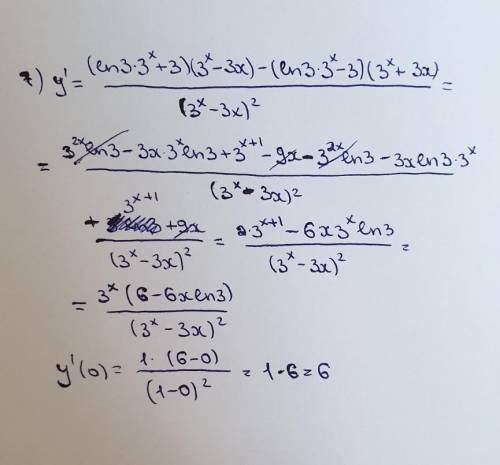 7) y' = ((ln3·3^x+3)(3^x-3x)-(ln3·3^x-3)(3^x+3x))/((3^x-3x)^2) =
= (3^2x ln3-3x·3^x ln3+3^x+1-9x-3^2x ln3-3x ln3·3^x)/((3^x-3x)^2)
(+3^x+1+9x)/((3^x-3x)^2) = (2·3^x+1-6x3^x ln3)/((3^x-3x)^2) =
= (3^x(6-6x ln3))/((3^x-3x)^2)
y'(0) = (1·(6-0))/((1-0)^2) = 1·6=6